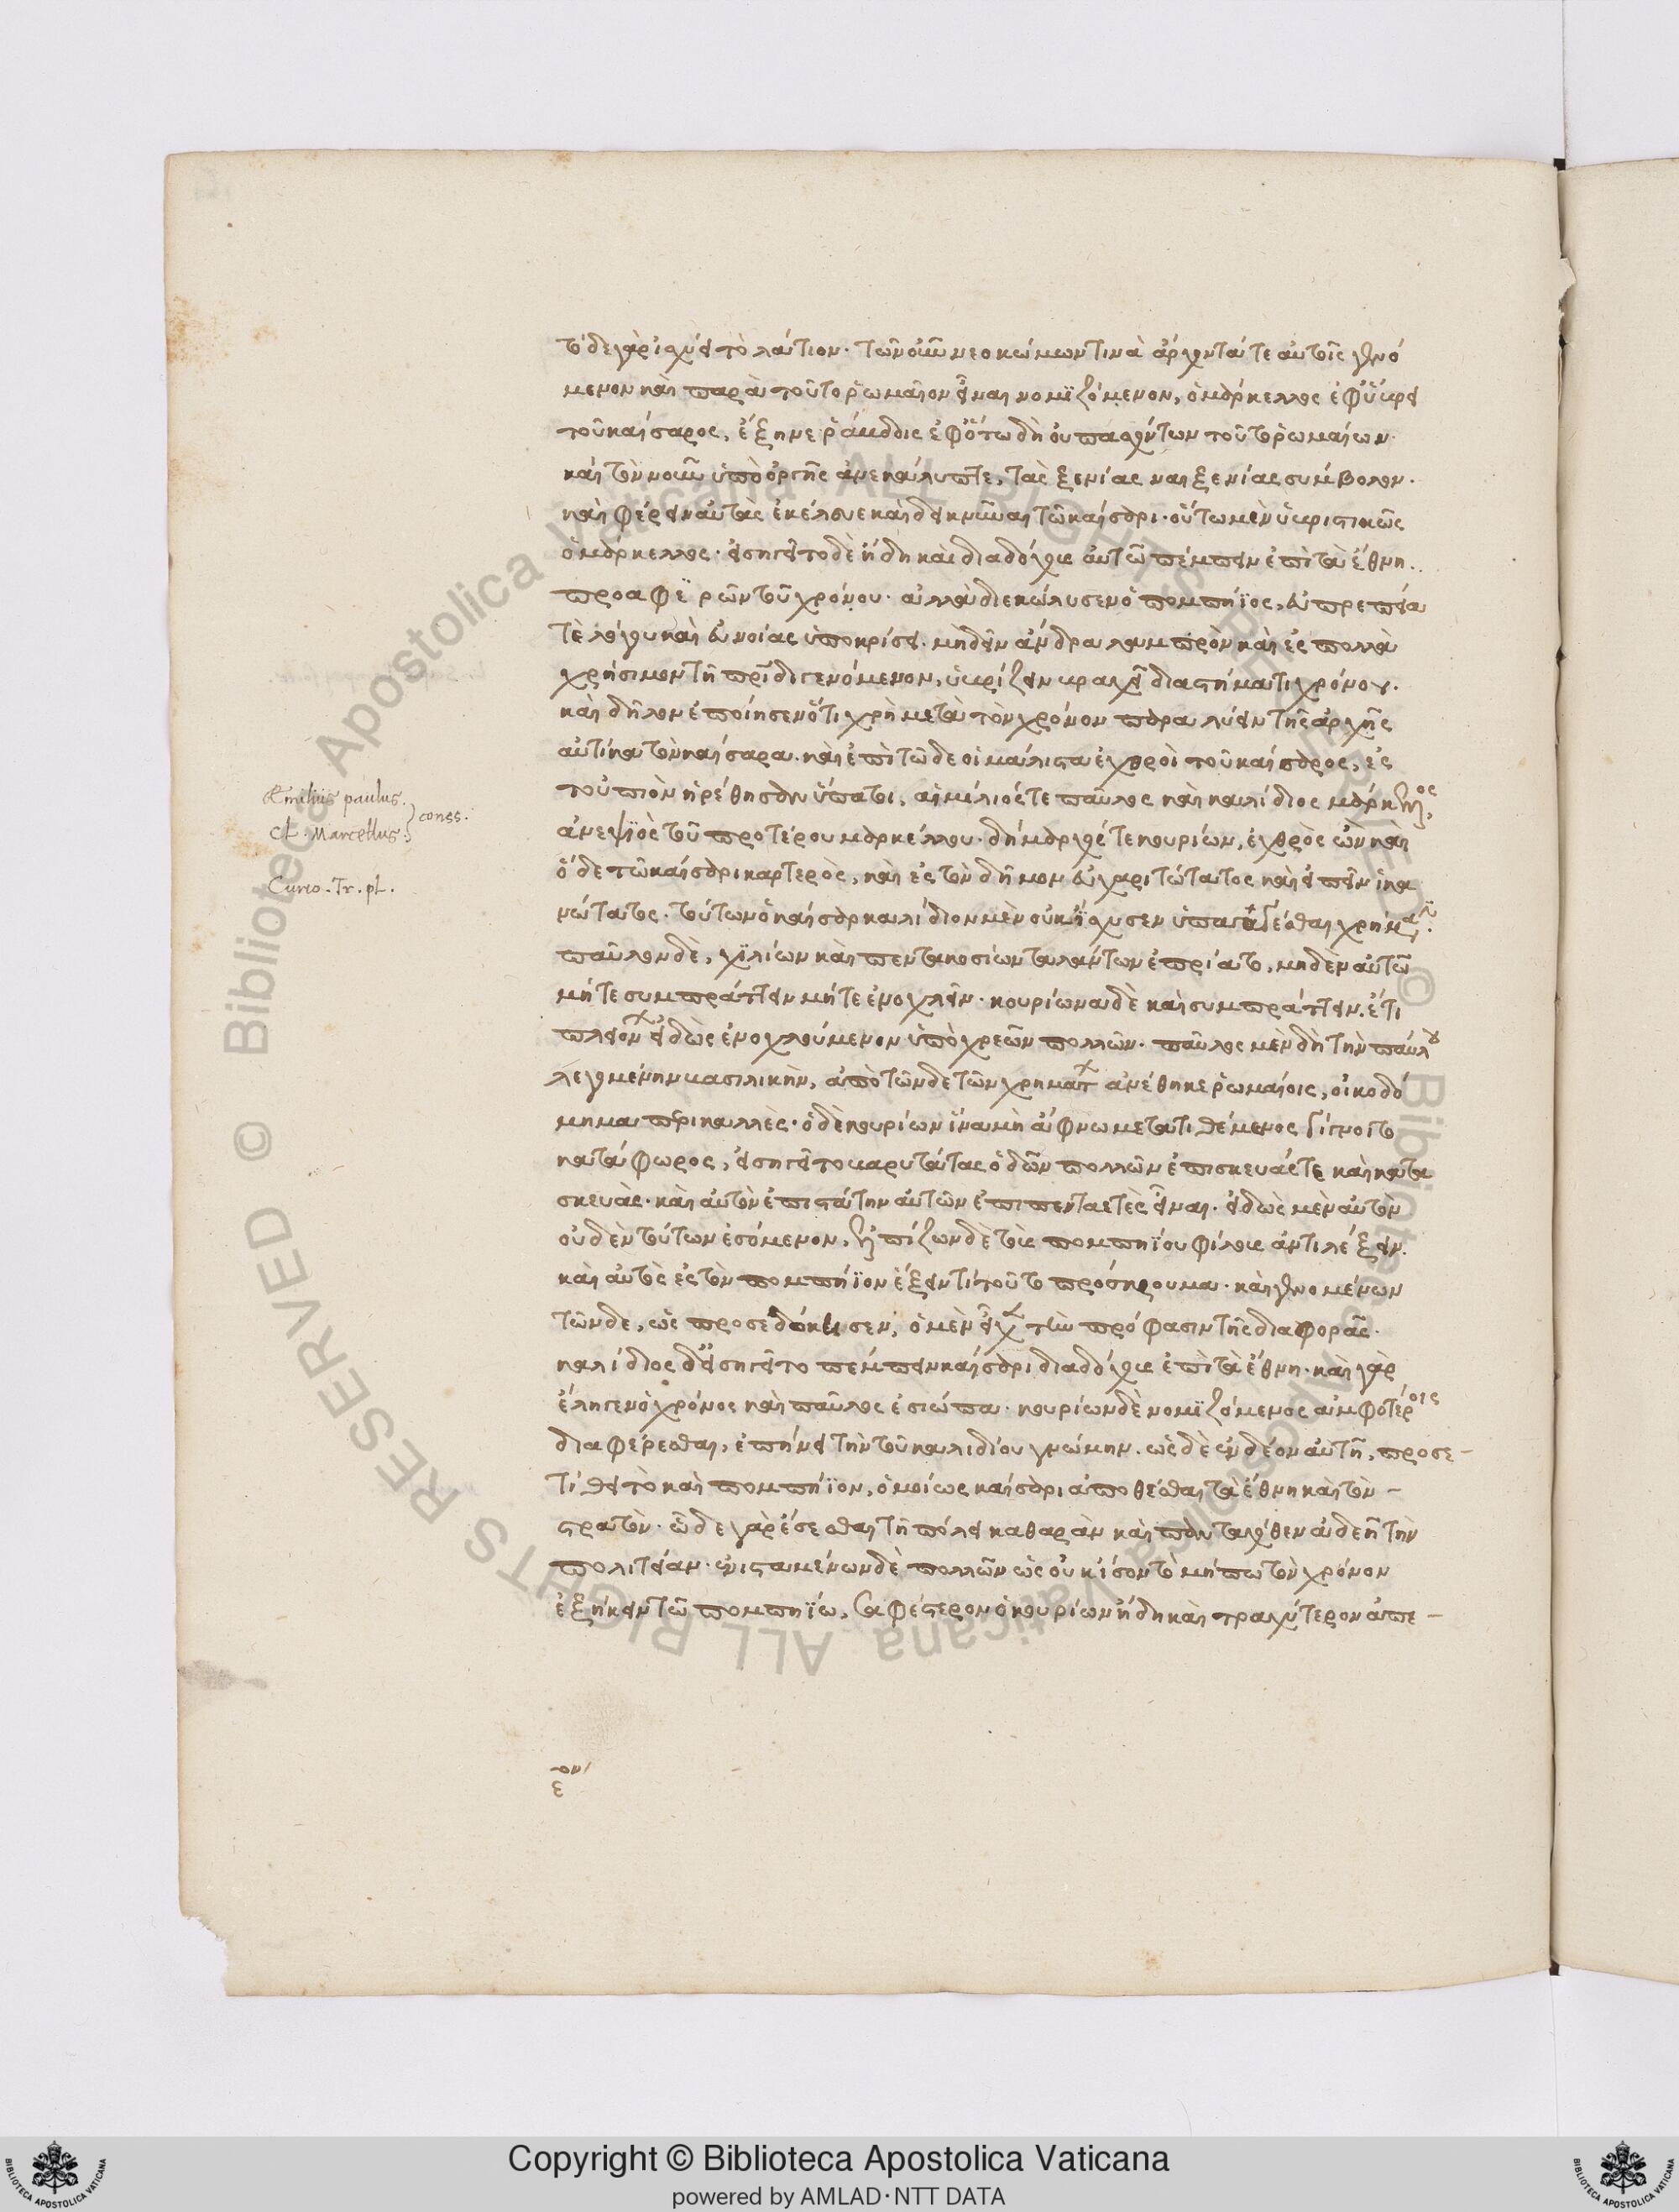 τόδε γὰρ ἰσχύει τὸ λάτιον. τῶν οὖν νεοκώμων τινὰ ἄρχοντά τε αὐτοῖς γενό
μενον καὶ παρὰ τοῦτο ῥωμαῖον εἶναι νομϊζόμενον, ὁ μάρκελλος ἐφ' ὕβρει
τοῦ καίσαρος, ἔξηνε ῥάβδοις ἐφ' ὅτω δὴ οὐ πασχόντων τοῦτο ῥωμαίων.
καὶ τὸν νοῦν ὑπὸ ὀργῆς ἀνεκάλυπτε, τὰς ξενίας και ξενίας σύμβολον.
καὶ φέρειν αὐτὰς ἐκέλευε καὶ δεικνῦναι τῶ καίσαρι. οὕτω μὲν ὑβριστικῶς
ὁ μάρκελλος. εἰσηγεῖτο δὲ ἤδη καὶ διαδόχους αὐτῶ πέμπειν ἐπὶ τὰ ἔθνη.
προαφεϊρῶν τοῦ χρόνου. ἀλλὰ διεκώλυσεν ὁ πομπήϊος, εὐπρεπεία
τὲ λόγου καὶ εὐνοίας ὑποκρίσει. μὴ δεῖν ἄνδρα λαμπρὸν καὶ ἐς πολλὰ
χρήσιμον τῆ πρίδι γενόμενον, ὑβρίζειν βραχεῖ διαστήματι χρόνου.
καὶ δῆλον ἐποίησεν ὅτι χρὴ μετὰ τὸν χρόνον παραλύειν τῆς ἀρχῆς
αὐτίκα τὸν καίσαρα. καὶ ἐπὶ τῶδε οἱ μάλιστα ἐχθροὶ τοῦ καίσαρος, ἐς
τοὐπιὸν ἡρέθησαν ὕπατοι, αἰμίλιός τε παῦλος καὶ καλίδιος μάρκελλος,
ἀνεψϊὸς τοῦ προτέρου μαρκέλλου. δήμαρχός τε κουρίων, ἐχθρὸς ὢν καὶ
ὅδε τῶ καίσαρι καρτερὸς, καὶ ἐς τὸν δῆμον εὐχαριτώτατος καὶ εἰπεῖν ἱκα
νώτατος. τούτων ὁ καίσαρ καλίδιον μὲν οὐκ ἴσχυσεν ὑπαγαγέσθαι χρήμασι.
παῦλον δὲ, χϊλίων καὶ πεντακοσίων ταλάντων ἐπρίατο, μηδὲν αὐτῶ
μήτε συμπράττειν μήτε ἐνοχλεῖν. κουρίωνα δὲ καὶ συμπράττειν. ἔτι
πλειόνων εἰδὼς ἐνοχλούμενον ὑπὸ χρεῶν πολλῶν. παῦλος μὲν δὴ τὴν παύλου
λεγομένην βασιλικὴν, ἀπὸ τῶνδε τῶν χρημάτων ἀνέθηκε ῥωμαίοις, οἰκοδό
μημα περικαλλὲς. ὁ δὲ κουρίων ἵνα μὴ ἄφνω μετατιθέμενος γίγνοιτο
κατάφωρος, εἰσηγεῖτο βαρυτάτας ὁδῶν πολλῶν ἐπισκευάς τε καὶ κατα
σκευάς. καὶ αὐτὸν ἐπιστάτην αὐτῶν ἐπι πενταετὲς εἶναι. εἰδὼς μὲν αὐτὸν
οὐδὲν τούτων ἐσόμενον, ἐλπίζων δὲ τοὺς πομπηΐου φίλους ἀντιλέξειν.
καὶ αὐτὸς ἐς τὸν πομπήϊον ἕξειν τὶ τοῦτο πρόσκρουμα. καὶ γενομένων
τῶνδε, ὡς προσεδόκησεν, ὁ μὲν εἶχε τὴν πρόφασιν τῆς διαφορᾶς.
καλίδιος δ' εἰσηγεῖτο πέμπειν καίσαρι διαδόχους ἐπὶ τὰ ἔθνη. καὶ γὰρ
ἔληγεν ὁ χρόνος καὶ παῦλος ἐσιώπα. κουρίων δὲ νομϊζόμενος ἀμφοτέροις
διαφέρεσθαι, ἐπήνει τὴν τοῦ καλιδίου γνώμην. ὡς δὲ ἐνδέον αὐτῆ, προσε-
τίθει τὸ καὶ πομπήϊον, ὁμοίως καίσαρι ἀποθέσθαι τὰ ἔθνη καὶ τὸν -
στρατὸν. ὧδε γὰρ ἔσεσθαι τῆ πόλει καθαρὰν καὶ πανταχόθεν ἀδεῆ τὴν
πολιτείαν. ἐνισταμένων δὲ πολλῶν ὡς οὐκ ἴσον τὸ μήπω τὸν χρόνον
ἐξήκειν τῶ πομπηΐω, σαφέστερον ὁ κουρίων ἤδη καὶ τραχύτερον ἀπε -
Emilius paulus.
Cl. Marcellus. } conss.
Curio. Tr. pl.
ε̄ον
Copyright © Biblioteca Apostolica Vaticana
powered by AMLAD·NTT DATA